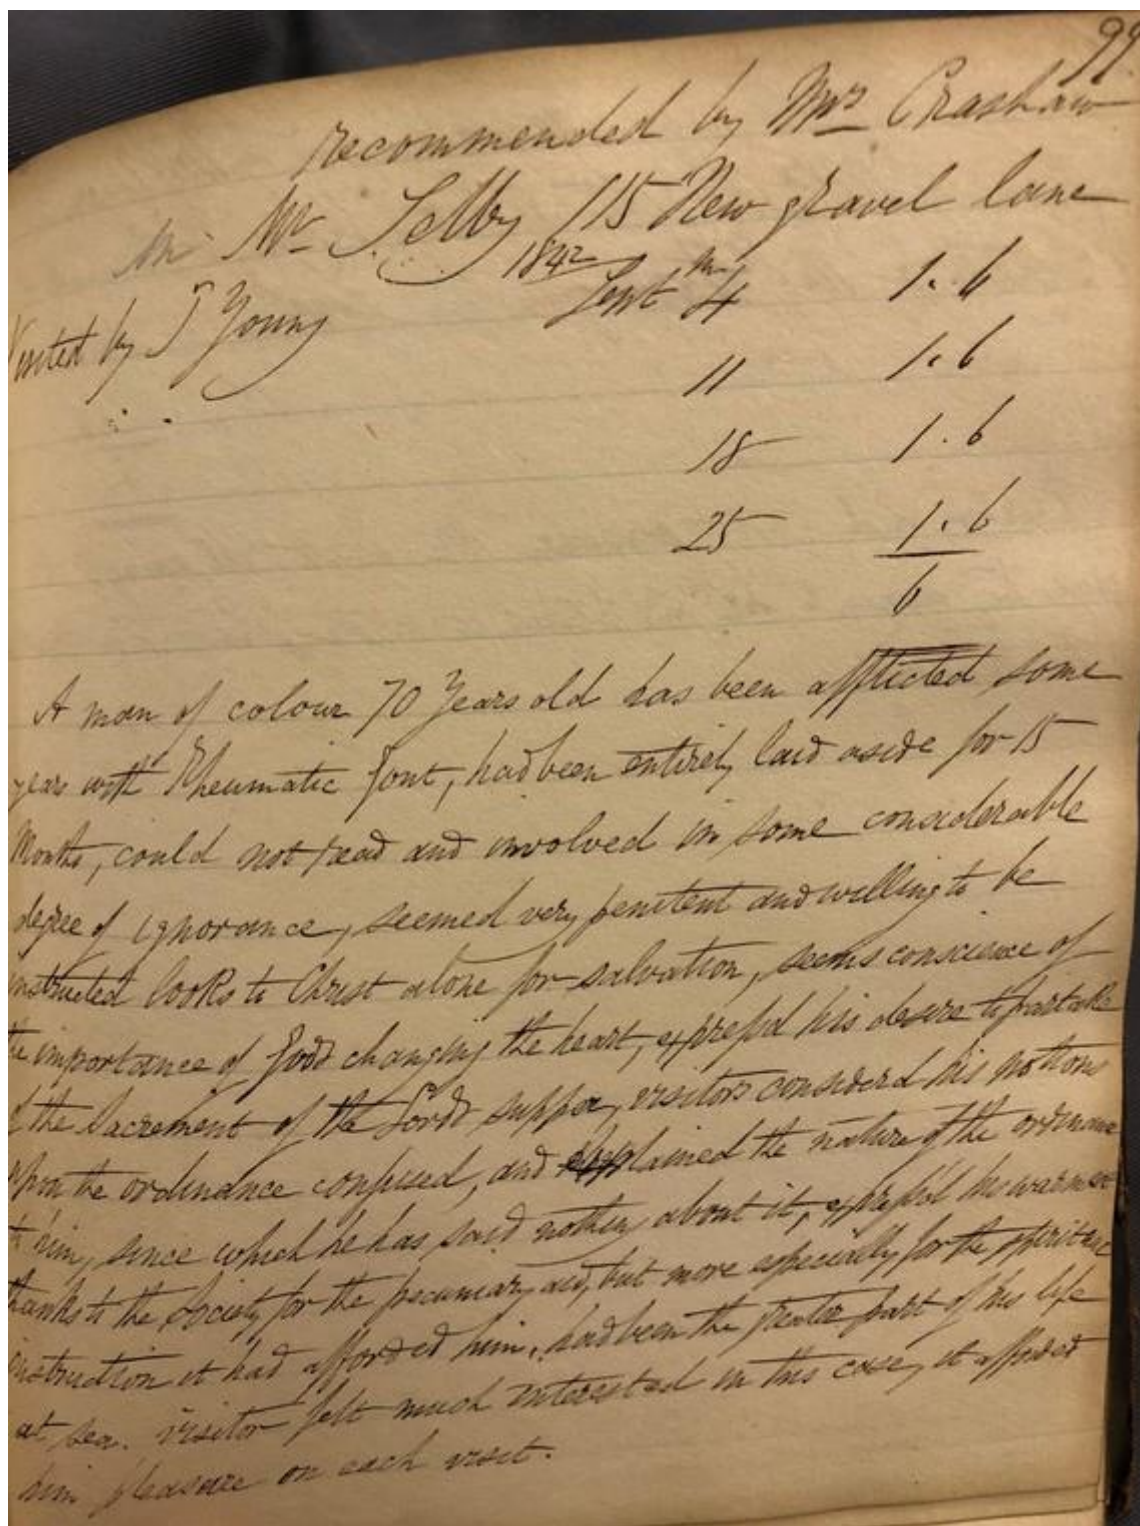 99
recommended by Mrs Crashaw
Mr Selby 115 New gravel lane
1842
Visited by J Young Sept 4 1. 6
11 1. 6
18 1. 6
25 1. 6
6
A man of colour 70 Years old has been afflicted some
years with Rheumatic Gout, had been entirely laid aside for 15
Months, could not read and involved in some considerable
degree of ignorance, seemed very penitent and willing to be
instructed looks to Christ alone for salvation, seems conscience of
the importance of God changing the heart, expressd his desire to partake
of the Sacrement of the Lords supper, visitors considerd his notions
upon the ordinance confused, and explained the nature of the ordinance
to him, since which he has said nothing about it, expressd his warmest
thanks to the Society for the pecuniary aid, but more especially for the spiritual
instruction it had afforded him, had been the greater part of his life
at sea. visitor felt much interested in this case, it afforded
him pleasure on each visit.